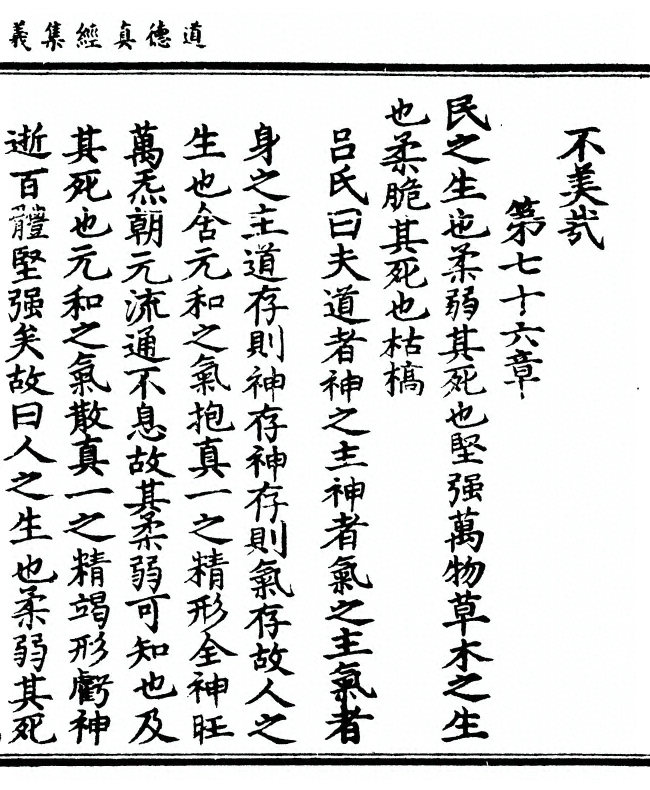 道德真經集義
不美哉
第七十六章
民之生也柔弱其死也堅强萬物草木之生
也柔脆其死也枯槁
吕氏曰夫道者神之主神者氣之主氣者
身之主道存則神存神存則氣存故人之
生也含元和之氣抱真一之精形全神旺
萬炁朝元流通不息故其柔弱可知也及
其死也元和之氣散真一之精竭形虧神
逝百體堅强矣故曰人之生也柔弱其死